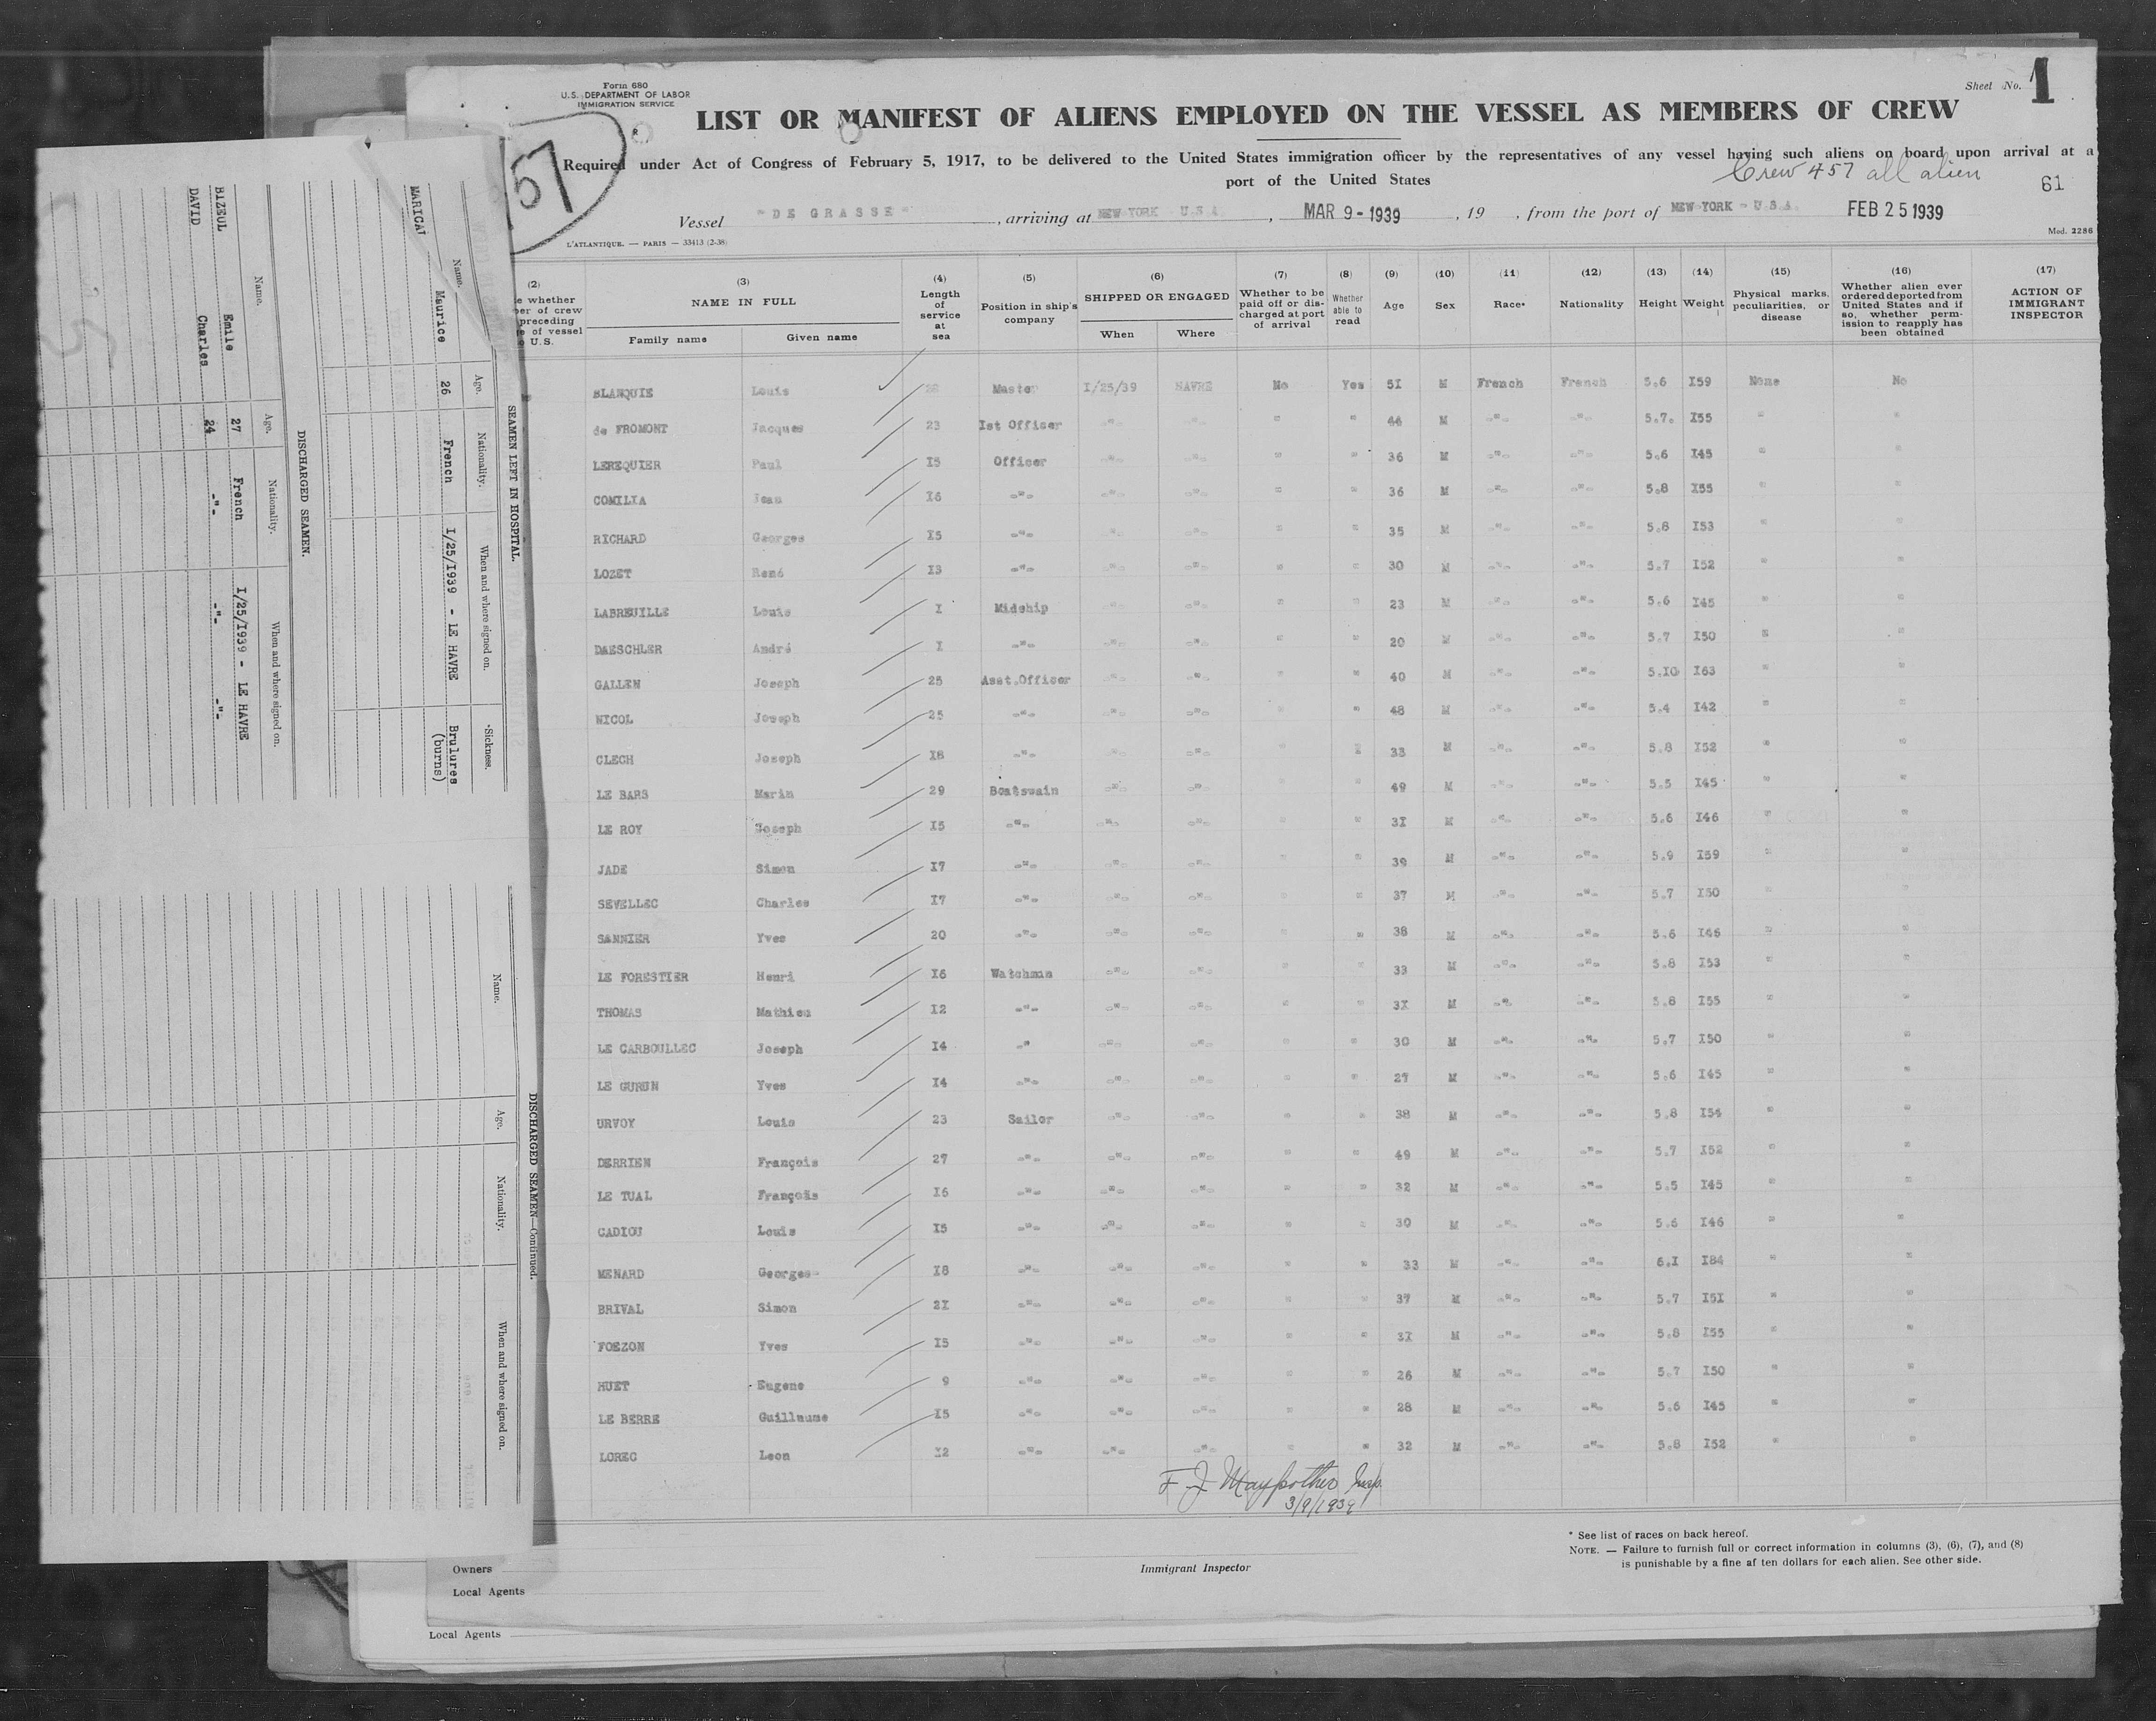 Form 680
U.S. DEPARTMENT OF LABOR
IMMIGRATION SERVICE
Sheet No. 1
LIST OR MANIFEST OF ALIENS EMPLOYED ON THE VESSEL AS MEMBERS OF CREW
57
Required under Act of Congress of February 5, 1917, to be delivered to the United States immigration officer by the representatives of any vessel having such aliens on board upon arrival at a
port of the United States
Crew 457 all alien
61
Vessel "DE GRASSE", arriving at NEW-YORK U.S.A., MAR 9-1939, 19 , from the port of NEW-YORK - U.S.A. FEB 25 1939
L'ATLANTIQUE. — PARIS — 33413 (2-38)
Med. 2286
(2) (3) (4) (5) (6) (7) (8) (9) (10) (11) (12) (13) (14) (15) (16) (17)
e whether
er of crew
preceding
of vessel
U.S.
NAME IN FULL
Family name Given name
Length of service at sea
Position in ship's company
SHIPPED OR ENGAGED
When Where
Whether to be paid off or discharged at port of arrival
Whether able to read
Age Sex Race* Nationality Height Weight
Physical marks, peculiarities, or disease
Whether alien ever ordered deported from United States and if so, whether permission to reapply has been obtained
ACTION OF IMMIGRANT INSPECTOR
BLANQUIE Louis Master I/25/39 HAVRE No Yes 5I M French French 5.6 I59 None No
de FROMONT Jacques 23 Ist Officer -"- -"- " " 44 M -"- -"- 5.7. I55 " "
LEREQUIER Paul I5 Officer -"- -"- " " 36 M -"- -"- 5.6 I45 " "
COMILIA Jean I6 -"- -"- -"- " " 36 M -"- -"- 5.8 I55 " "
RICHARD Georges I5 -"- -"- -"- " " 35 M -"- -"- 5.8 I53 " "
LOZET René I3 -"- -"- -"- " " 30 M -"- -"- 5.7 I52 " "
LABREUILLE Louis I Midship -"- -"- " " 23 M -"- -"- 5.6 I45 " "
DAESCHLER André I -"- -"- -"- " " 20 M -"- -"- 5.7 I50 " "
GALLEN Joseph 25 Asst.Officer -"- -"- " " 40 M -"- -"- 5.IO I63 " "
NICOL Joseph 25 -"- -"- -"- " " 48 M -"- -"- 5.4 I42 " "
CLECH Joseph I8 -"- -"- -"- " " 33 M -"- -"- 5.8 I52 " "
LE BARS Marin 29 Boatswain -"- -"- " " 49 M -"- -"- 5.5 I45 " "
LE ROY Joseph I5 -"- -"- -"- " " 3I M -"- -"- 5.6 I46 " "
JADE Simon I7 -"- -"- -"- " " 39 M -"- -"- 5.9 I59 " "
SEVELLEC Charles I7 -"- -"- -"- " " 37 M -"- -"- 5.7 I50 " "
SANNIER Yves 20 -"- -"- -"- " " 38 M -"- -"- 5.6 I46 " "
LE FORESTIER Henri I6 Watchman -"- -"- " " 33 M -"- -"- 5.8 I53 " "
THOMAS Mathieu I2 -"- -"- -"- " " 3I M -"- -"- 5.8 I55 " "
LE CARBOULLEC Joseph I4 -" -"- -"- " " 30 M -"- -"- 5.7 I50 " "
LE GURUN Yves I4 -"- -"- -"- " " 27 M -"- -"- 5.6 I45 " "
URVOY Louis 23 Sailor -"- -"- " " 38 M -"- -"- 5.8 I54 " "
DERRIEN François 27 -"- -"- -"- " " 49 M -"- -"- 5.7 I52 " "
LE TUAL François I6 -"- -"- -"- " " 32 M -"- -"- 5.5 I45 " "
CADIOU Louis I5 -"- -"- -"- " " 30 M -"- -"- 5.6 I46 " "
MENARD Georges I8 -"- -"- -"- " " 33 M -"- -"- 6.I I84 " "
BRIVAL Simon 2I -"- -"- -"- " " 37 M -"- -"- 5.7 I5I " "
FOEZON Yves I5 -"- -"- -"- " " 3I M -"- -"- 5.8 I55 " "
HUET Eugene 9 -"- -"- -"- " " 26 M -"- -"- 5.7 I50 " "
LE BERRE Guillaume I5 -"- -"- -"- " " 28 M -"- -"- 5.6 I45 " "
LOREC Leon I2 -"- -"- -"- " " 32 M -"- -"- 5.8 I52 " "
F J Maypother Insp.
3/9/1939
Owners
Local Agents
Immigrant Inspector
* See list of races on back hereof.
NOTE. — Failure to furnish full or correct information in columns (3), (6), (7), and (8)
is punishable by a fine af ten dollars for each alien. See other side.
Local Agents
SEAMEN LEFT IN HOSPITAL.
Name. Age. Nationality. When and where signed on. Sickness.
Maurice 26 French I/25/I939 - LE HAVRE Brulures
(burns)
DISCHARGED SEAMEN.
Name. Age. Nationality. When and where signed on.
BIZEUL Emile 27 French I/25/I939 - LE HAVRE
DAVID Charles 24 -"- -"- -"-
DISCHARGED SEAMEN—Continued.
Name. Age. Nationality. When and where signed on.